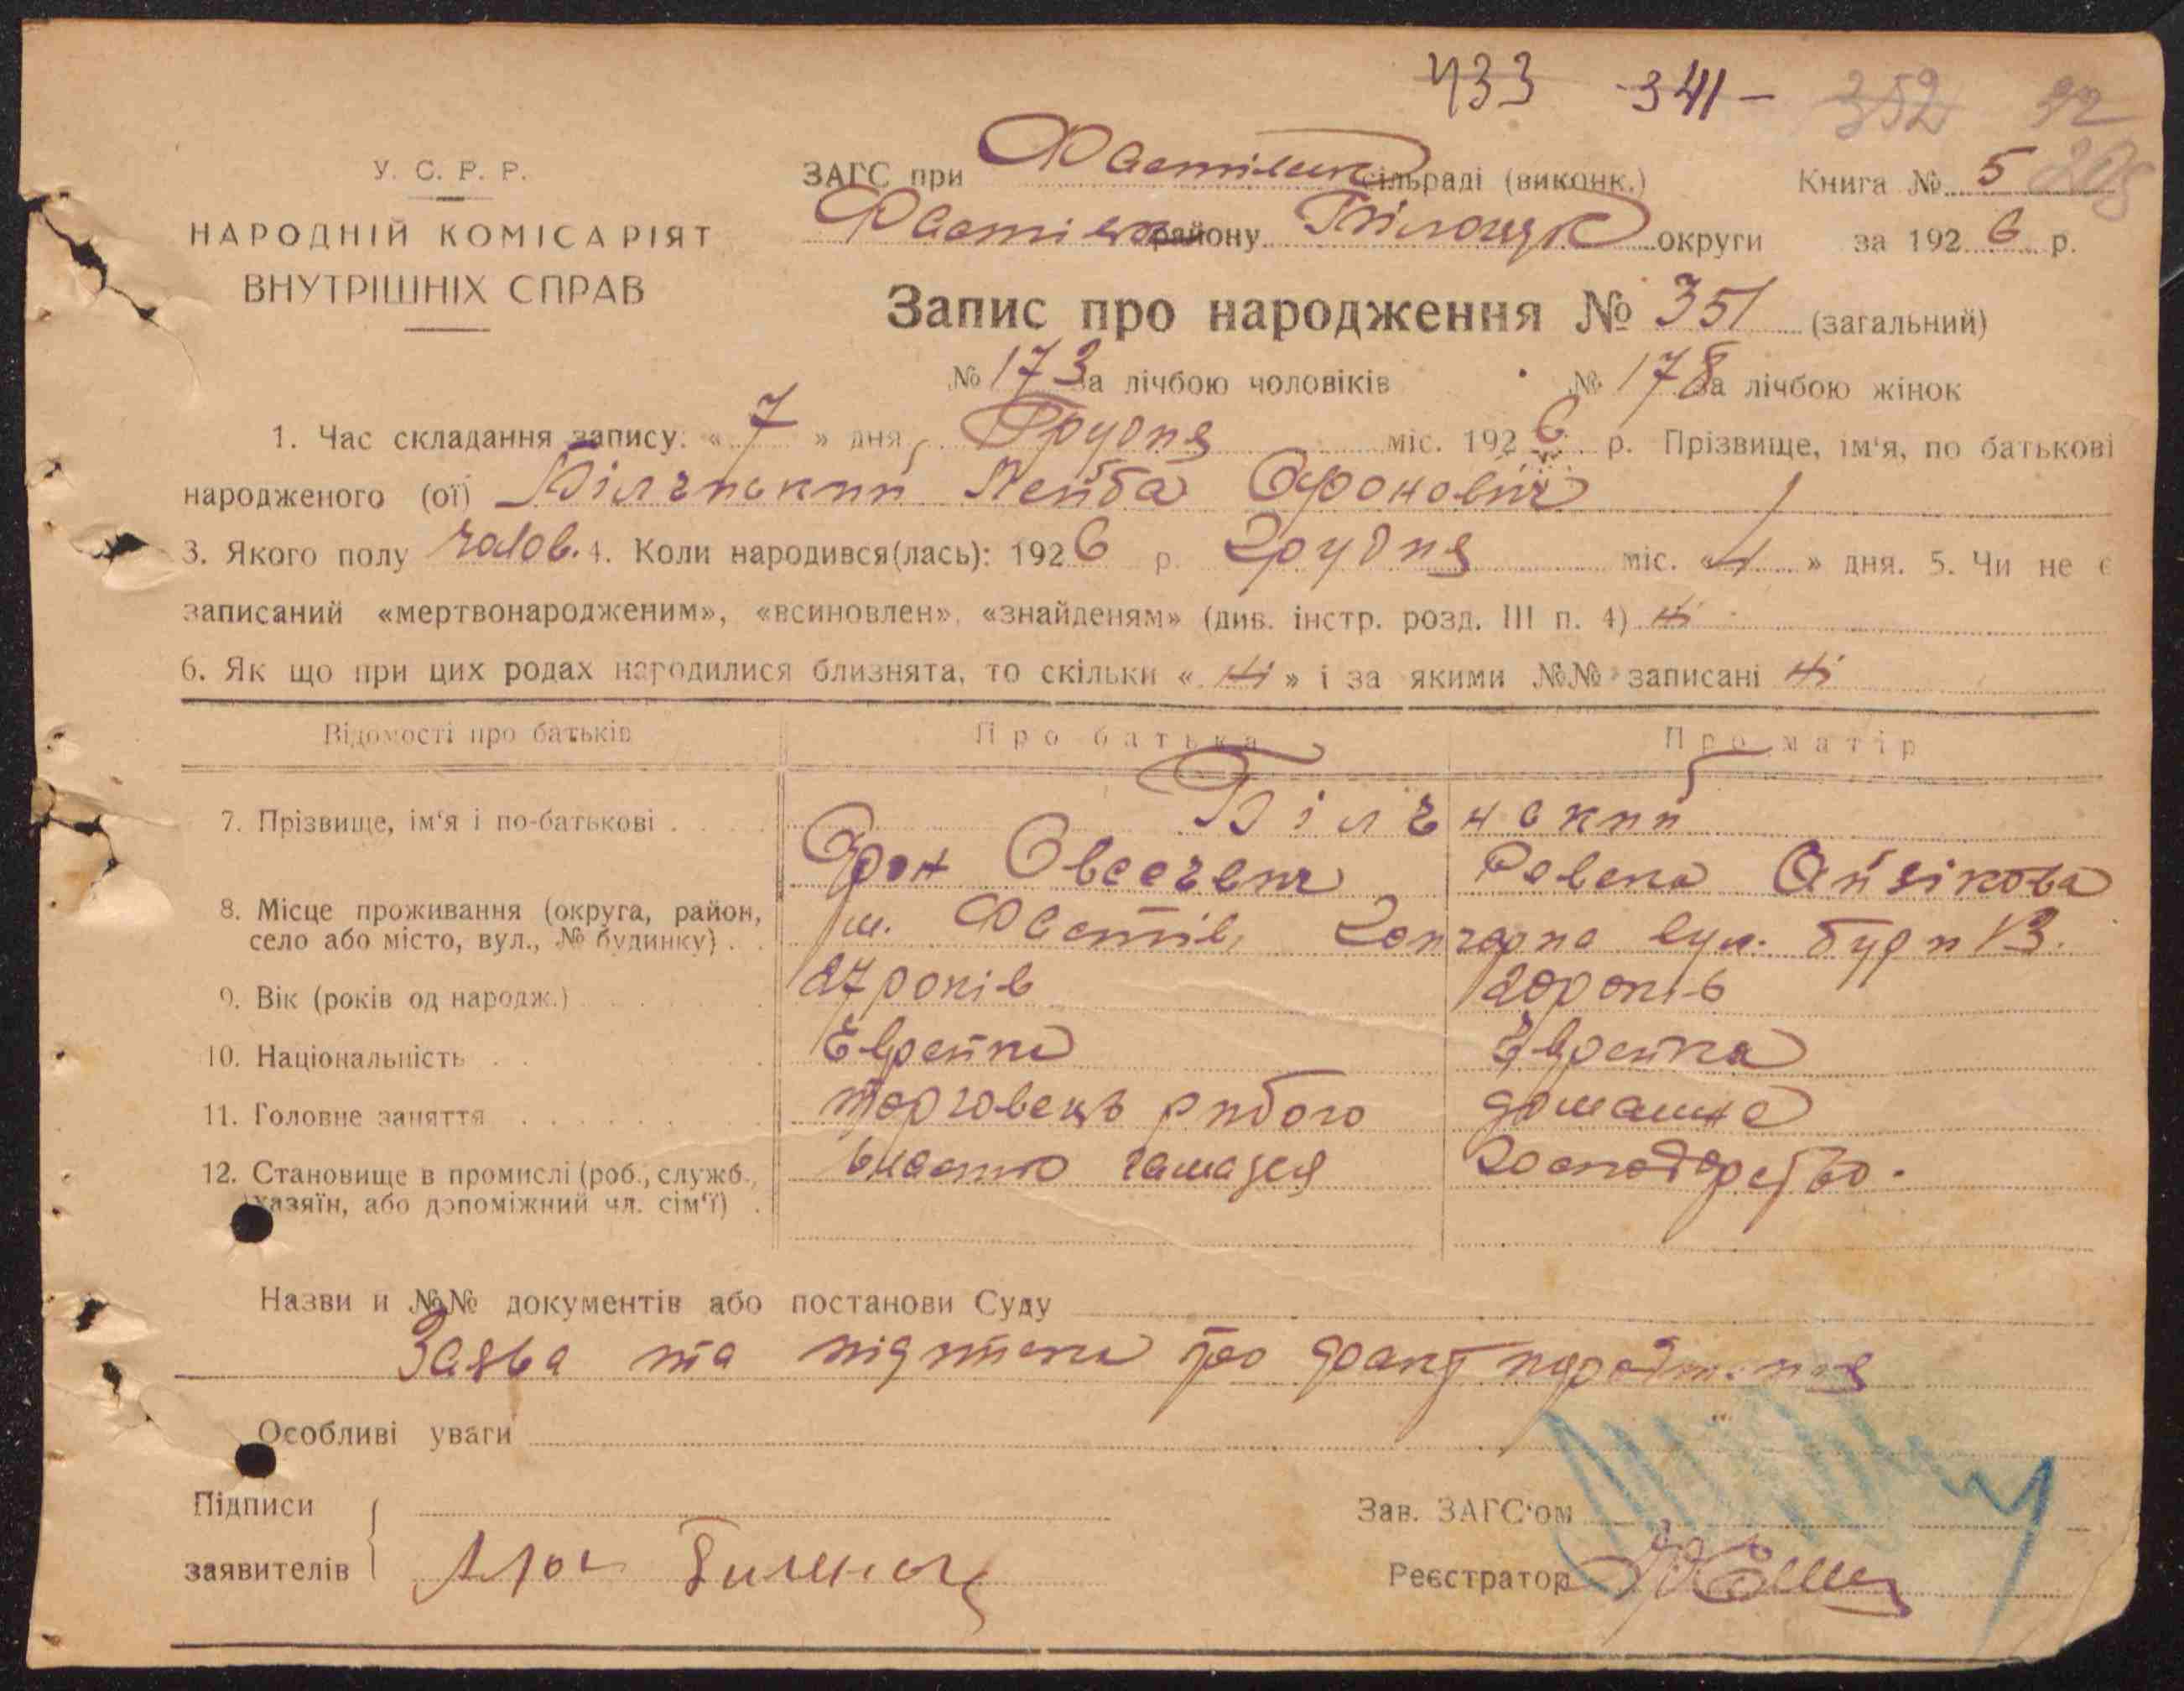 433 -341- 352 92
У. С. Р. Р.
ЗАГС при Фастівськ сільраді (виконк.) Книга № 5 205
НАРОДНІЙ КОМІСАРІЯТ
ВНУТРІШНІХ СПРАВ
Фастівськ району Білоцерк округи за 1926 р.
Запис про народження № 351 (загальний)
№ 173 за лічбою чоловіків № 178 за лічбою жінок
1. Час складання запису: « 7 » дня Грудня міс. 1926 р. Прізвище, ім'я, по батькові
народженого (ої) Більчиский Лейба Аронович
3. Якого полу чолов. 4. Коли народився(лась): 1926 р. Грудня міс. «1» дня. 5. Чи не є
записаний «мертвонародженим», «всиновлен», «знайденям» (див. інстр. розд. III п. 4) ні
6. Як що при цих родах народилися близнята, то скільки « ні » і за якими №№ записані ні
Відомості про батьків Про батька Про матір
7. Прізвище, ім'я і по-батькові Білчнский
Арон Овсеевич Ревека Айзікова
8. Місце проживання (округа, район,
село або місто, вул., № будинку) м. Фастів, Гончарна вул. буд н 13.
9. Вік (років од народж.) 27 років 20 років
10. Національність Еврейка Еврейка
11. Головне заняття торговець рибою домашнє
12. Становище в промислі (роб., служб.,
хазяїн, або допоміжний чл. сім'ї) господарство.
Назви и №№ документів або постанови Суду
Заява та підписка про факт народження
Особливі уваги
Підписи
заявителів
Зав. ЗАГС'ом
Реєстратор